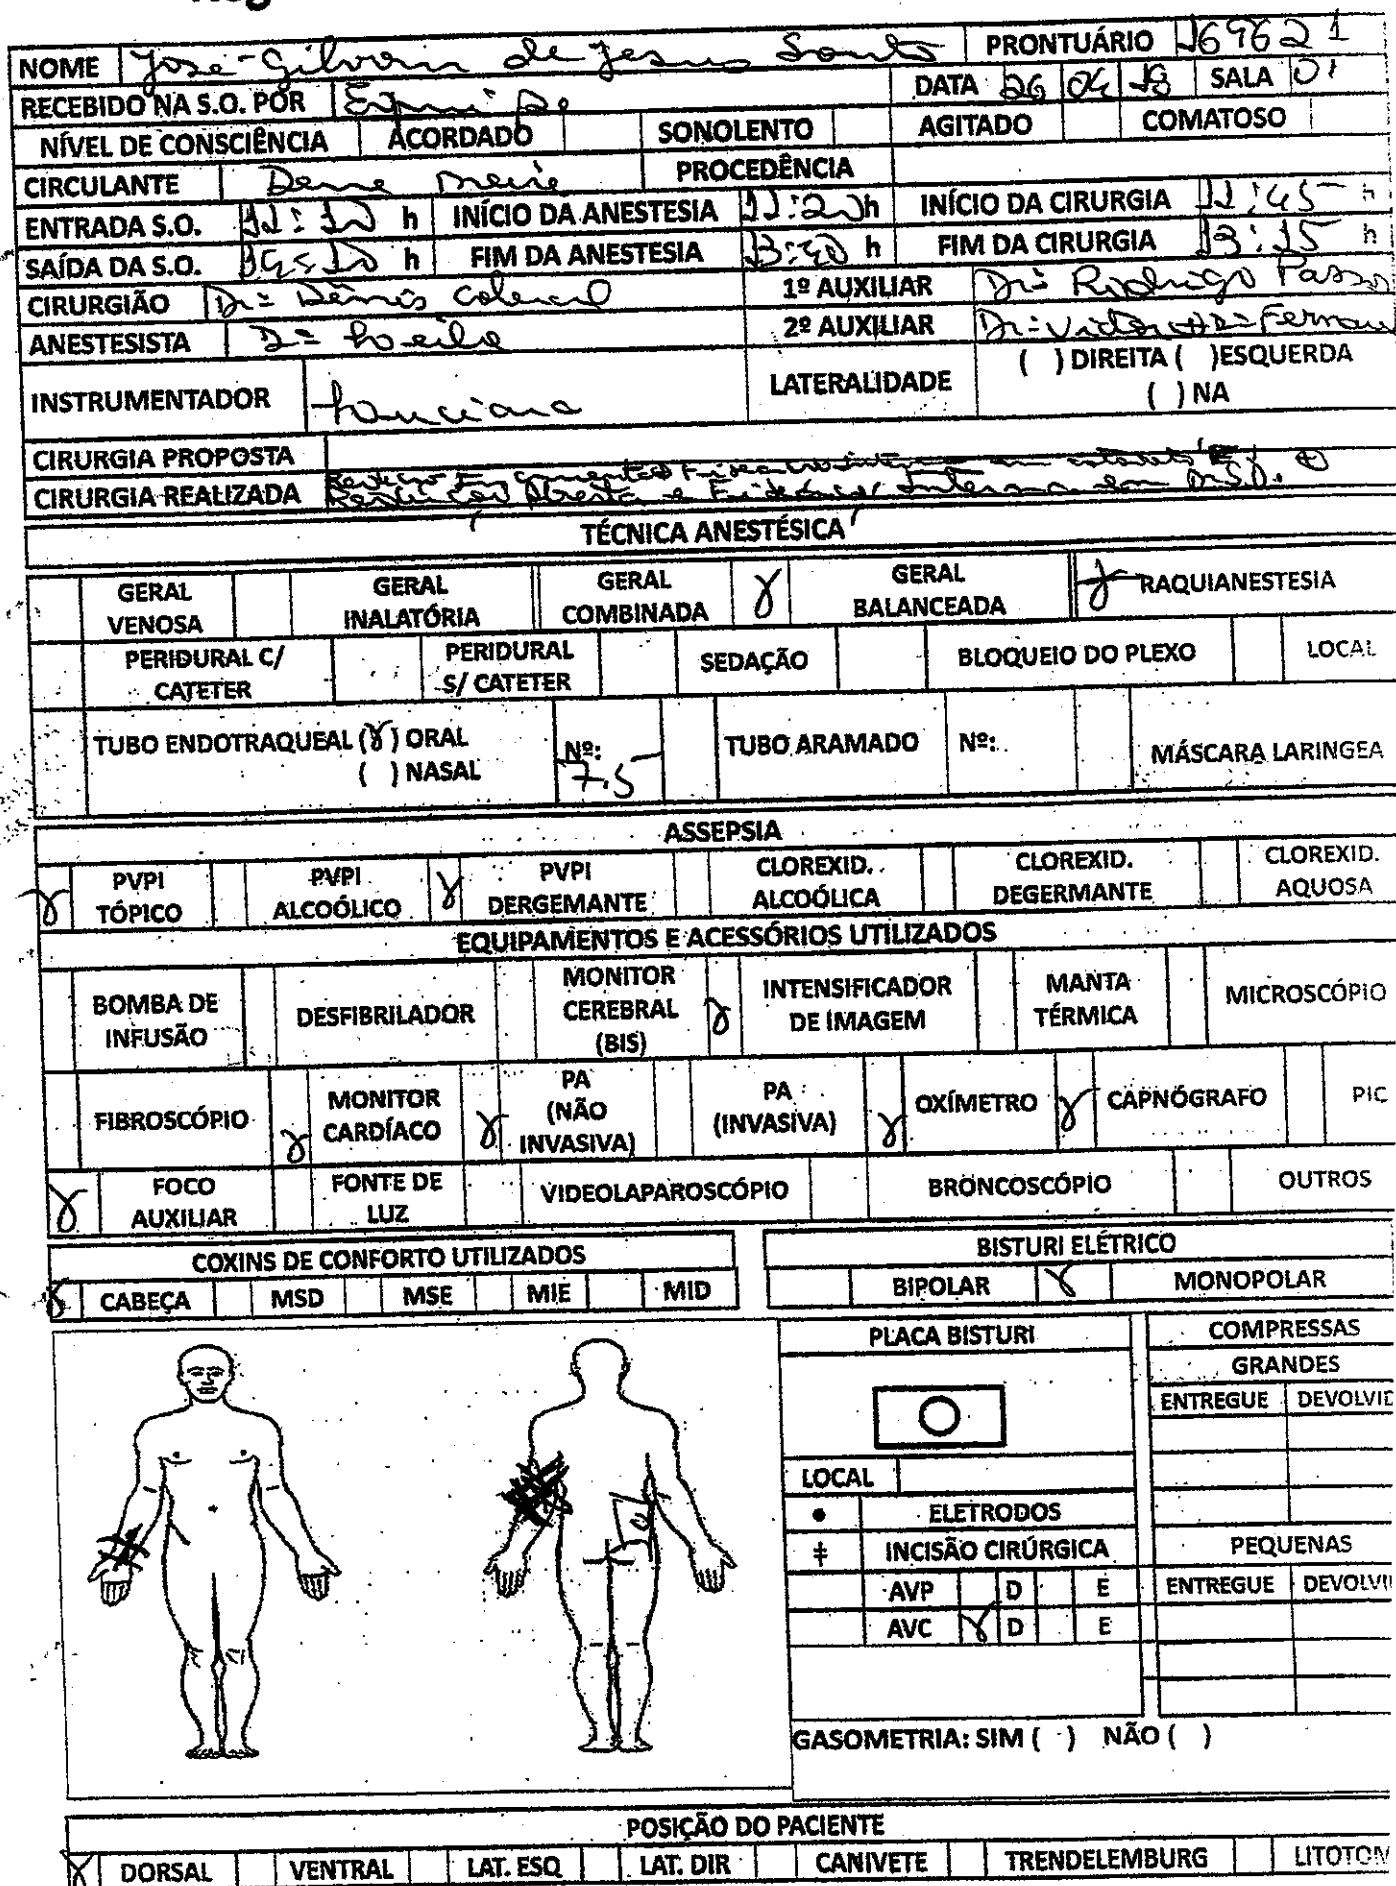 NOME José Gilvan de Jesus Santos PRONTUÁRIO 169621
RECEBIDO NA S.O. POR DATA 26 04 18 SALA 01
NÍVEL DE CONSCIÊNCIA ACORDADO SONOLENTO AGITADO COMATOSO
CIRCULANTE PROCEDÊNCIA
ENTRADA S.O. 11:10 h INÍCIO DA ANESTESIA 11:20 h INÍCIO DA CIRURGIA 11:45 h
SAÍDA DA S.O. h FIM DA ANESTESIA 13:40 h FIM DA CIRURGIA 13:15 h
CIRURGIÃO Drº Dênis Cabral 1º AUXILIAR Drº Rodrigo Passo
ANESTESISTA 2º AUXILIAR Drº Victor
INSTRUMENTADOR Luciana LATERALIDADE ( ) DIREITA ( )ESQUERDA
( ) NA
CIRURGIA PROPOSTA
CIRURGIA REALIZADA Interna em
TÉCNICA ANESTÉSICA
GERAL VENOSA GERAL INALATÓRIA GERAL COMBINADA GERAL BALANCEADA RAQUIANESTESIA
PERIDURAL C/ CATETER PERIDURAL S/ CATETER SEDAÇÃO BLOQUEIO DO PLEXO LOCAL
TUBO ENDOTRAQUEAL (X) ORAL Nº: TUBO ARAMADO Nº: MÁSCARA LARINGEA
( ) NASAL 7.5
ASSEPSIA
X PVPI TÓPICO PVPI ALCOÓLICO X PVPI DERGEMANTE CLOREXID. ALCOÓLICA CLOREXID. DEGERMANTE CLOREXID. AQUOSA
EQUIPAMENTOS E ACESSÓRIOS UTILIZADOS
BOMBA DE INFUSÃO DESFIBRILADOR MONITOR CEREBRAL (BIS) X INTENSIFICADOR DE IMAGEM MANTA TÉRMICA MICROSCÓPIO
FIBROSCÓPIO X MONITOR CARDÍACO X PA (NÃO INVASIVA) PA (INVASIVA) X OXÍMETRO X CAPNÓGRAFO PIC
X FOCO AUXILIAR FONTE DE LUZ VIDEOLAPAROSCÓPIO BRONCOSCÓPIO OUTROS
COXINS DE CONFORTO UTILIZADOS BISTURI ELÉTRICO
X CABEÇA MSD MSE MIE MID BIPOLAR X MONOPOLAR
PLACA BISTURI COMPRESSAS
GRANDES
ENTREGUE DEVOLVID
LOCAL
ELETRODOS
INCISÃO CIRÚRGICA PEQUENAS
AVP D E ENTREGUE DEVOLVI
AVC X D E
GASOMETRIA: SIM ( ) NÃO ( )
POSIÇÃO DO PACIENTE
X DORSAL VENTRAL LAT. ESQ LAT. DIR CANIVETE TRENDELEMBURG LITOTOM